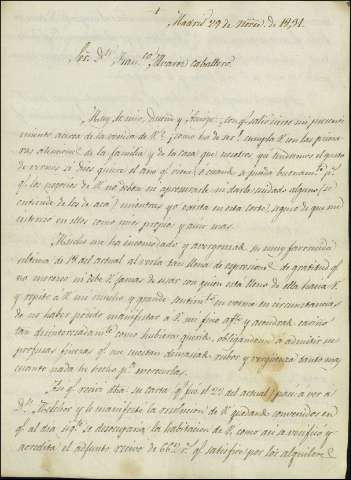 Madrid 29 de Novre. de 1831.
Sor. Dn. Franco. Alvarez Caballero.
Muy Sr. mio, Dueño y Amigo: con qe. salió cierto mi presenti-
miento acerca de la venida de V.? ¡como ha de ser! cumpla V. con las prime-
ras atenciones de la familia y de la casa que nosotros ya tendremos el gusto
de vernos si Dios quiere el año qe. viene, o cuando se pueda buenamte. ps.
qe. los negocios de V. no deben su apresurarle ni darle cuidado alguno, se
entiende de los de acá, mientras yo exista en esta Corte, seguro de que me
intereso en ellos como mios propios y aun mas.
Mucho me ha incomodado y avergonzado su muy favorecida
ultima de 18 del actual al verla tan llena de expresiones de gratitud qe.
no merezco ni debe V. jamas de usar con quien esta lleno de ella hacia V.
y repito a V. mi mucho y grande sentimto. en verme en circunstancias
de no haber podido manifestar a V. mi fino afto. y acendrado cariño
tan desinteresadamte. como hubiera querido, obligandome a admitir su
profusas fuerzas qe. me cuestan demasiado rubor y vergüenza tanto muy
cuanto nada he hecho pa. merecerlas.
Luego qe. recivi dha. su carta qe. fué el 22 del actual, pasé a ver a
Dn. Melchor y le manifesté la resolucion de V. quedando convenidos en
qe. al dia sigte. se desocuparia la habitacion de V. como asi se verificó y
acredita el adjunto recivo de 662 rs. qe. satisfice por los alquileres